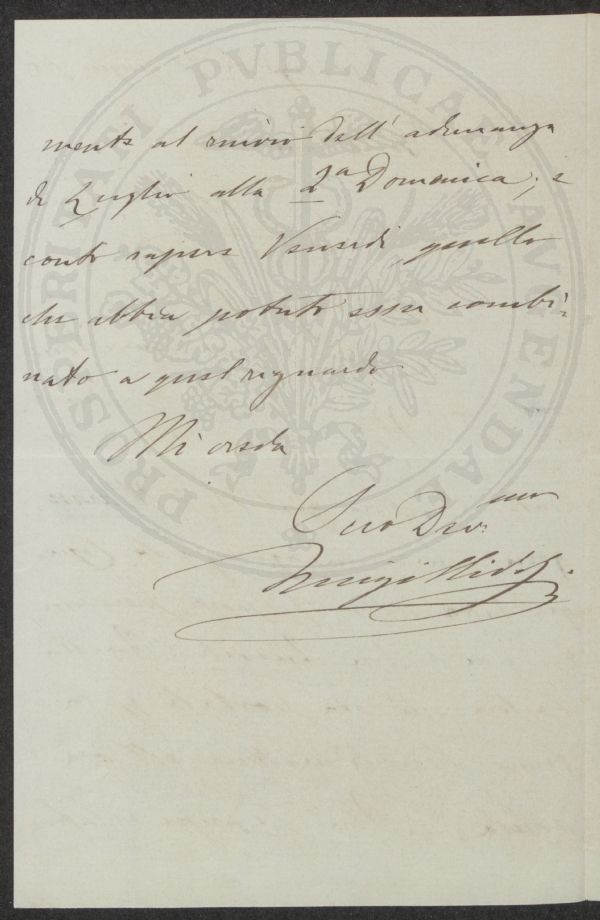 PROSPERITATI PVBLICAE AVGENDAE
mente al rinvio dell' adunanza
di Luglio alla 2a Domenica; e
conto sapere Venerdì quello
che abbia potuto esser combi=
nato a quel riguardo
Mi creda
Suo Dev.mo
Luigi